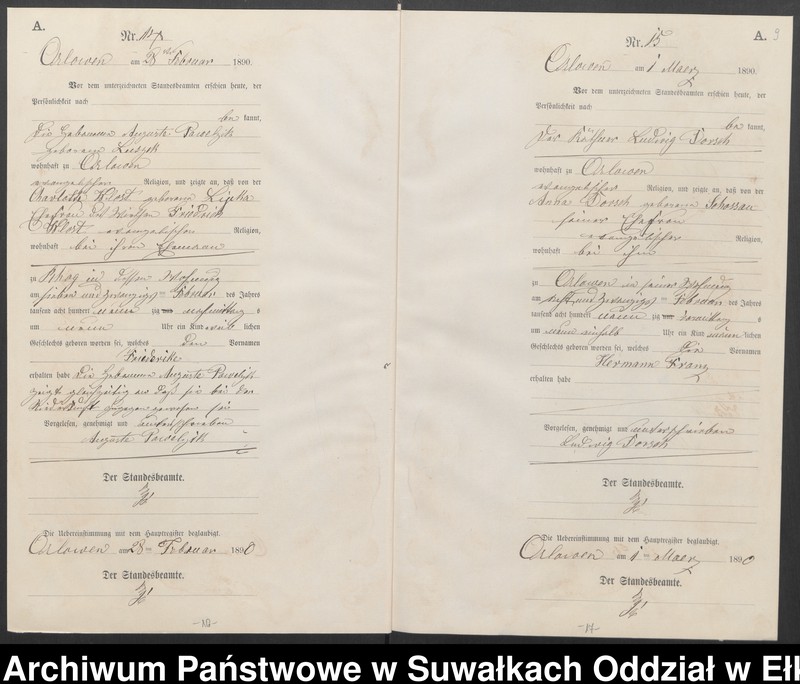 A.
Nr. 14
Orlowen am 28 ten Februar 1890.
Vor dem unterzeichneten Standesbeamten erschien heute, der
Persönlichkeit nach
be kannt,
die Hebamme Auguste Pawelzik
geborene
wohnhaft zu Orlowen
evangelischen Religion, und zeigte an, daß von der
Charlotte Klost geborene Lipka
Ehefrau des Friedrich
Klost evangelischen Religion,
wohnhaft bei ihrem Ehemann
zu in dessen Wohnung
am sieben und zwanzigst ten Februar des Jahres
tausend acht hundert neunzig nachmittag s
um neun Uhr ein Kind weib lichen
Geschlechts geboren worden sei, welches den Vornamen
Friederike
erhalten habe Die Hebamme Auguste Pawelzik
zeigt gleichzeitig an daß sie bei der
Niederkunft zugegen gewesen sei
Vorgelesen, genehmigt und unterschrieben
Auguste Pawelzik
Der Standesbeamte.
Die Uebereinstimmung mit dem Hauptregister beglaubigt.
Orlowen am 28 ten Februar 1890
Der Standesbeamte.
A. 9
Nr. 15
Orlowen am 1 Maerz 1890.
Vor dem unterzeichneten Standesbeamten erschien heute, der
Persönlichkeit nach
be kannt,
der Käthner Ludwig Dorsch
wohnhaft zu Orlowen
evangelischer Religion, und zeigte an, daß von der
Anna Dorsch geborene
seiner Ehefrau
evangelischer Religion,
wohnhaft bei ihm
zu Orlowen in seiner Wohnung
am und zwanzigst ten Februar des Jahres
tausend acht hundert neunzig vormittag s
um neun einhalb Uhr ein Kind männ lichen
Geschlechts geboren worden sei, welches die Vornamen
Hermann Franz
erhalten habe
Vorgelesen, genehmigt und unterschrieben
Ludwig Dorsch
Der Standesbeamte.
Die Uebereinstimmung mit dem Hauptregister beglaubigt.
Orlowen am 1 ten Maerz 1890
Der Standesbeamte.
-17-
Archiwum Państwowe w Suwałkach Oddział w Ełk